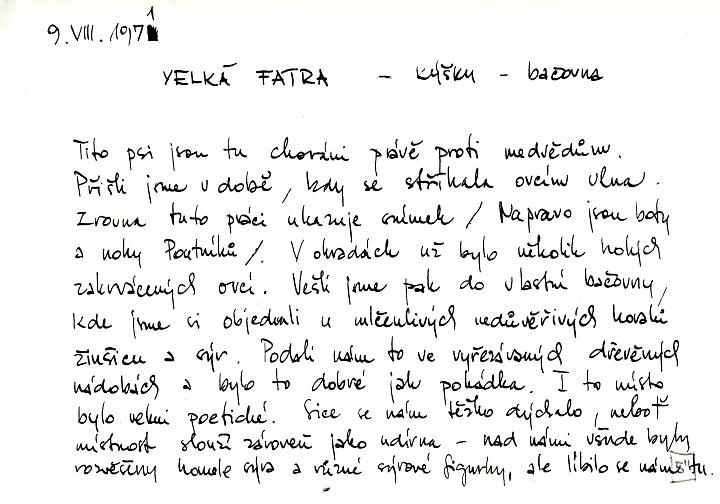 9. VIII. 1971
VELKÁ FATRA - KÝŠKY - bačovna
Tito psi jsou tu chováni právě proti medvědům.
Přišli jsme v době, kdy se stříhala ovcím vlna.
Zrovna tuto práci ukazuje snímek / Napravo jsou boty
a nohy Poutníků /. V ohradách už bylo několik nahých
zakrvácených ovcí. Vešli jsme pak do vlastní bačovny,
kde jsme si objednali u mlčenlivých nedůvěřivých horalů
žinčici a sýr. Podali nám to ve vyřezávaných dřevěných
nádobách a bylo to dobré jak pohádka. I to místo
bylo velmi poetické. Sice se nám těžko dýchalo, neboť
místnost slouží zároveň jako udírna - nad námi všude byly
rozvěšeny koule sýra a různé sýrové figurky, ale líbilo se nám tu.